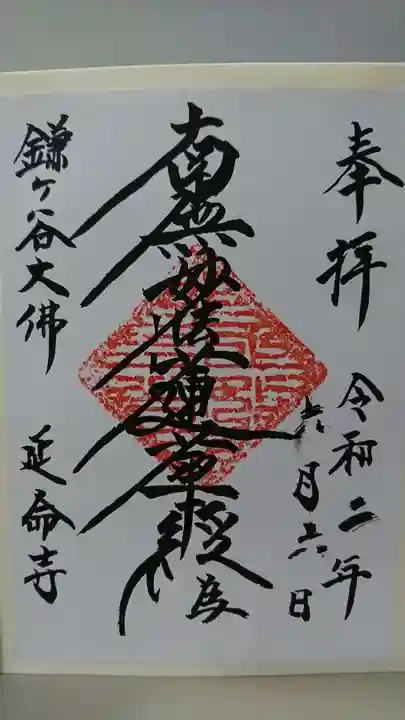 奉拝
令和二年
六月六日
南無妙法蓮華経
鎌ヶ谷大佛 延命寺